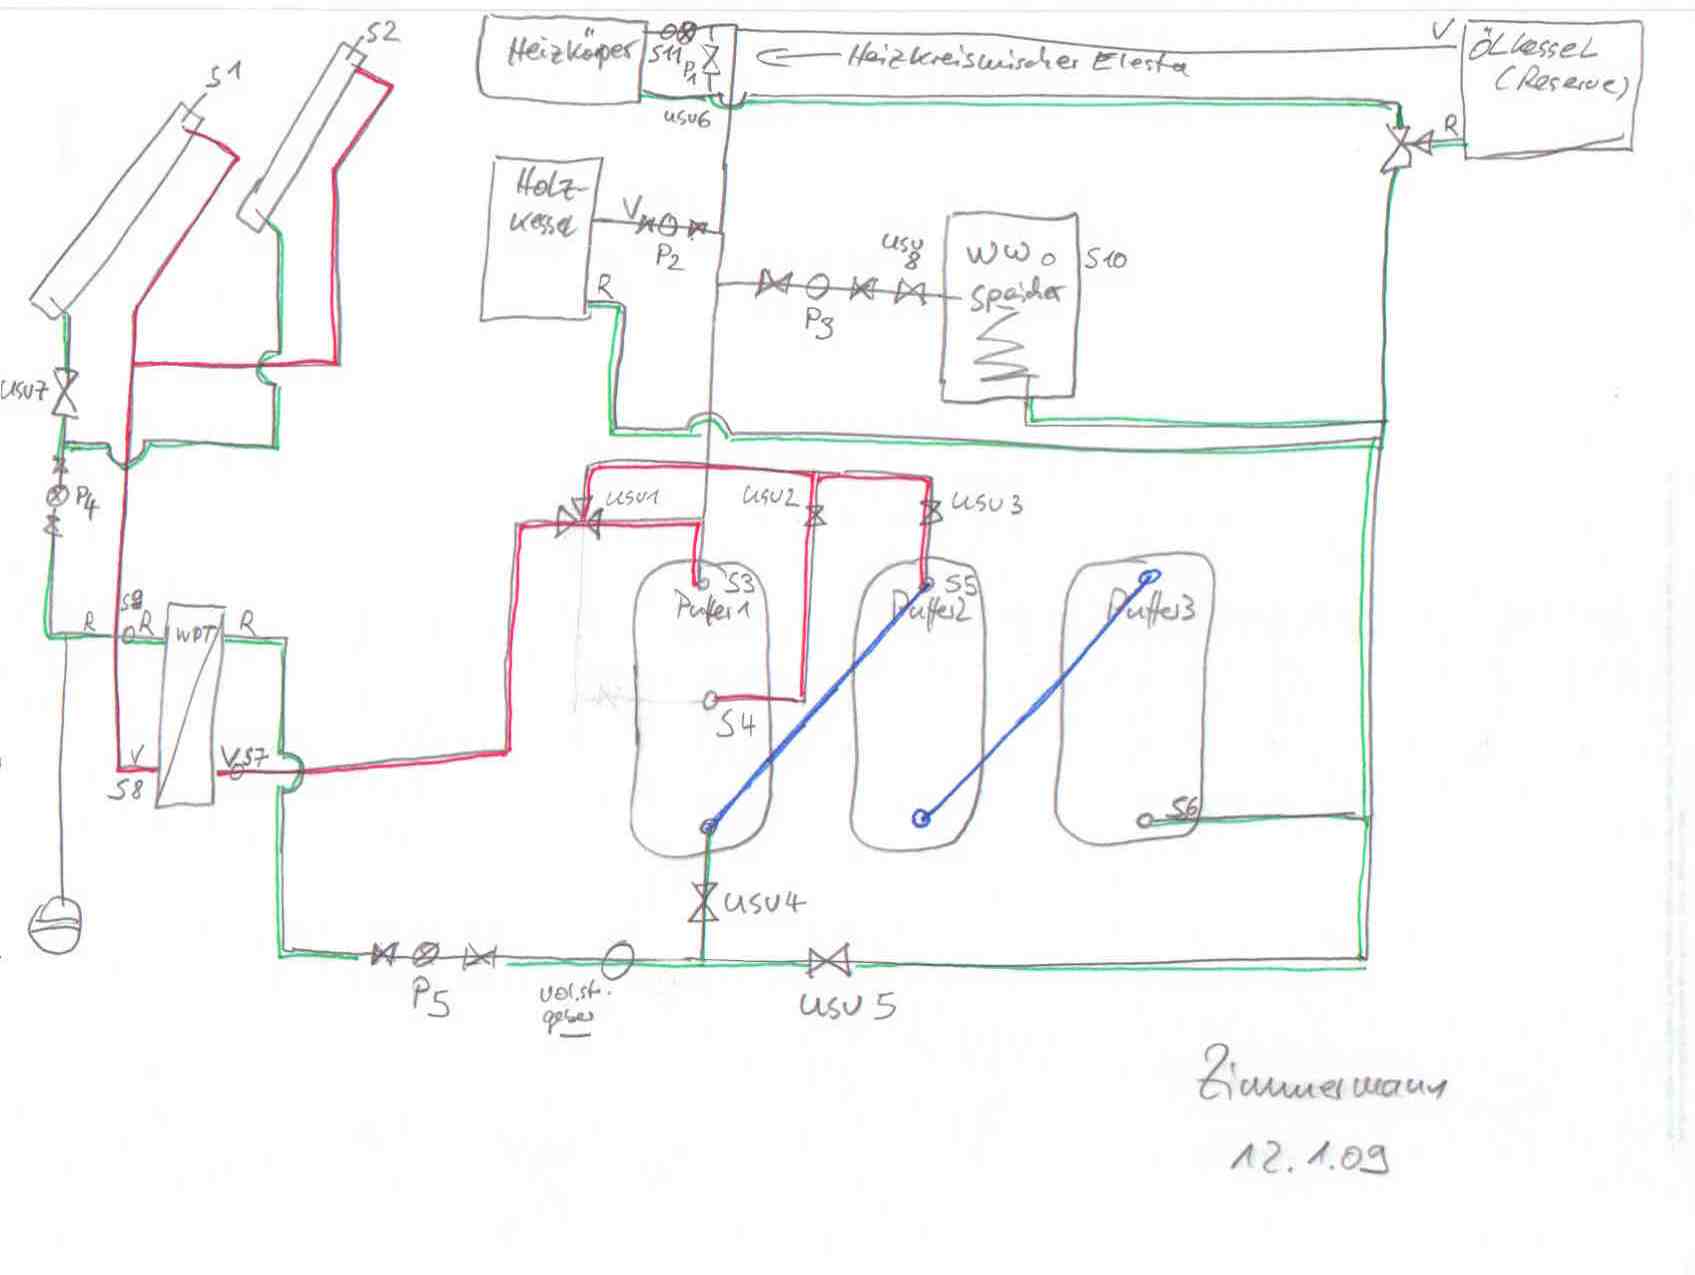 S1
S2
Heizkörper
S11
P1
Heizkreismischer Elesta
V
Ölkessel
(Reserve)
R
USV6
Holz-
kessel
V
P2
R
USV
8
P3
WW
Speicher
S10
USV7
P4
USV1
USV2
USV3
S3
Puffer1
S5
Puffer2
Puffer3
S4
R
R
WPT
R
V
S8
V
S7
S6
USV4
P5
Vol.str.
geber
USV5
Zimmermann
12.1.09